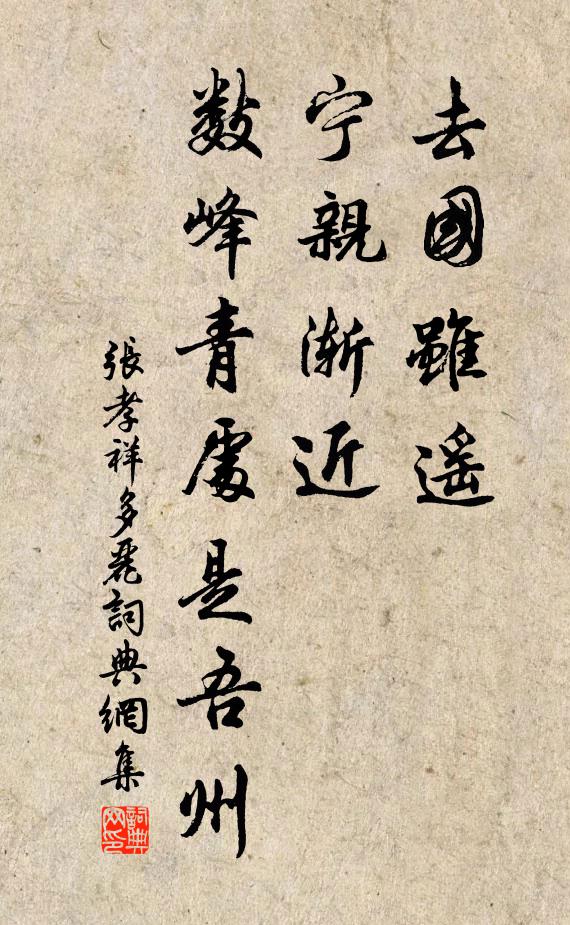 去國雖遥
宁親漸近
數峰青處是吾州
張孝祥多麗詞典網集
詞典网印